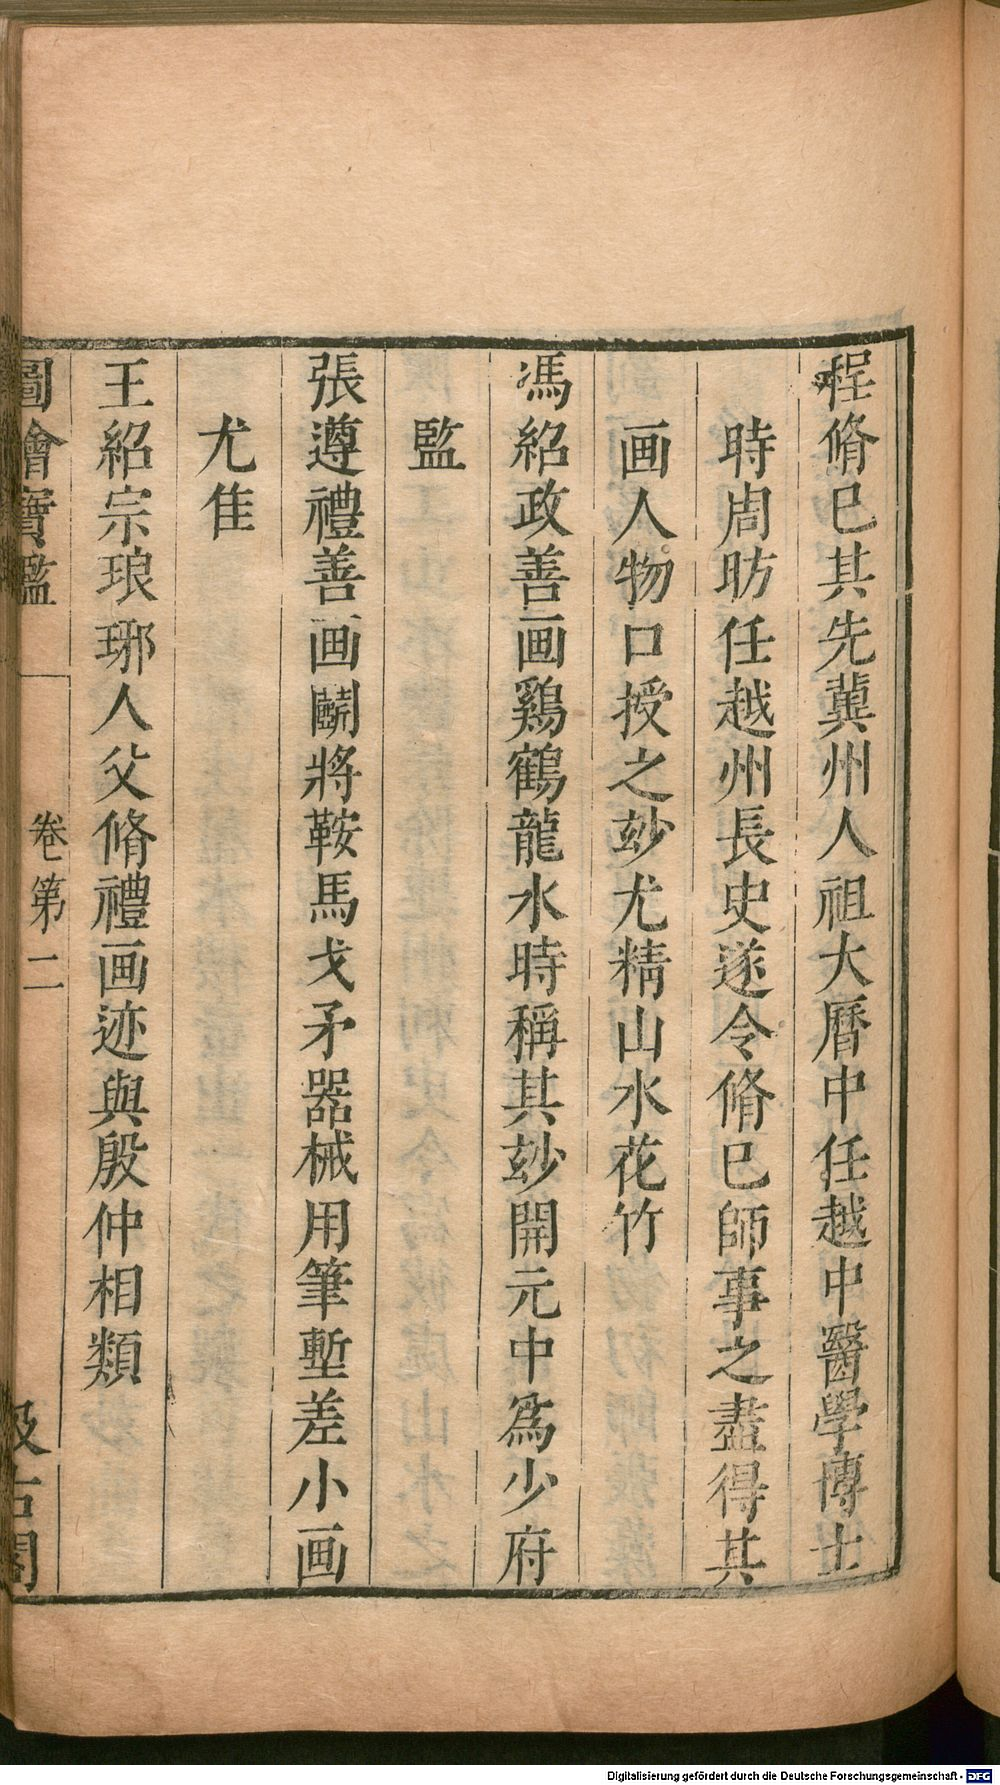 程脩巳其先冀州人祖大曆中任越中醫學博士
時周昉任越州長史遂令脩巳師事之盡得其
画人物口授之玅尤精山水花竹
馮紹政善画鷄鶴龍水時稱其玅開元中爲少府
監
張遵禮善画鬭將鞍馬戈矛器械用筆塹差小画
尤隹
王紹宗琅琊人父脩禮画迹與殷仲相類
圖繪寶鑑 卷第二 汲古閣
Digitalisierung gefördert durch die Deutsche Forschungsgemeinschaft - DFG